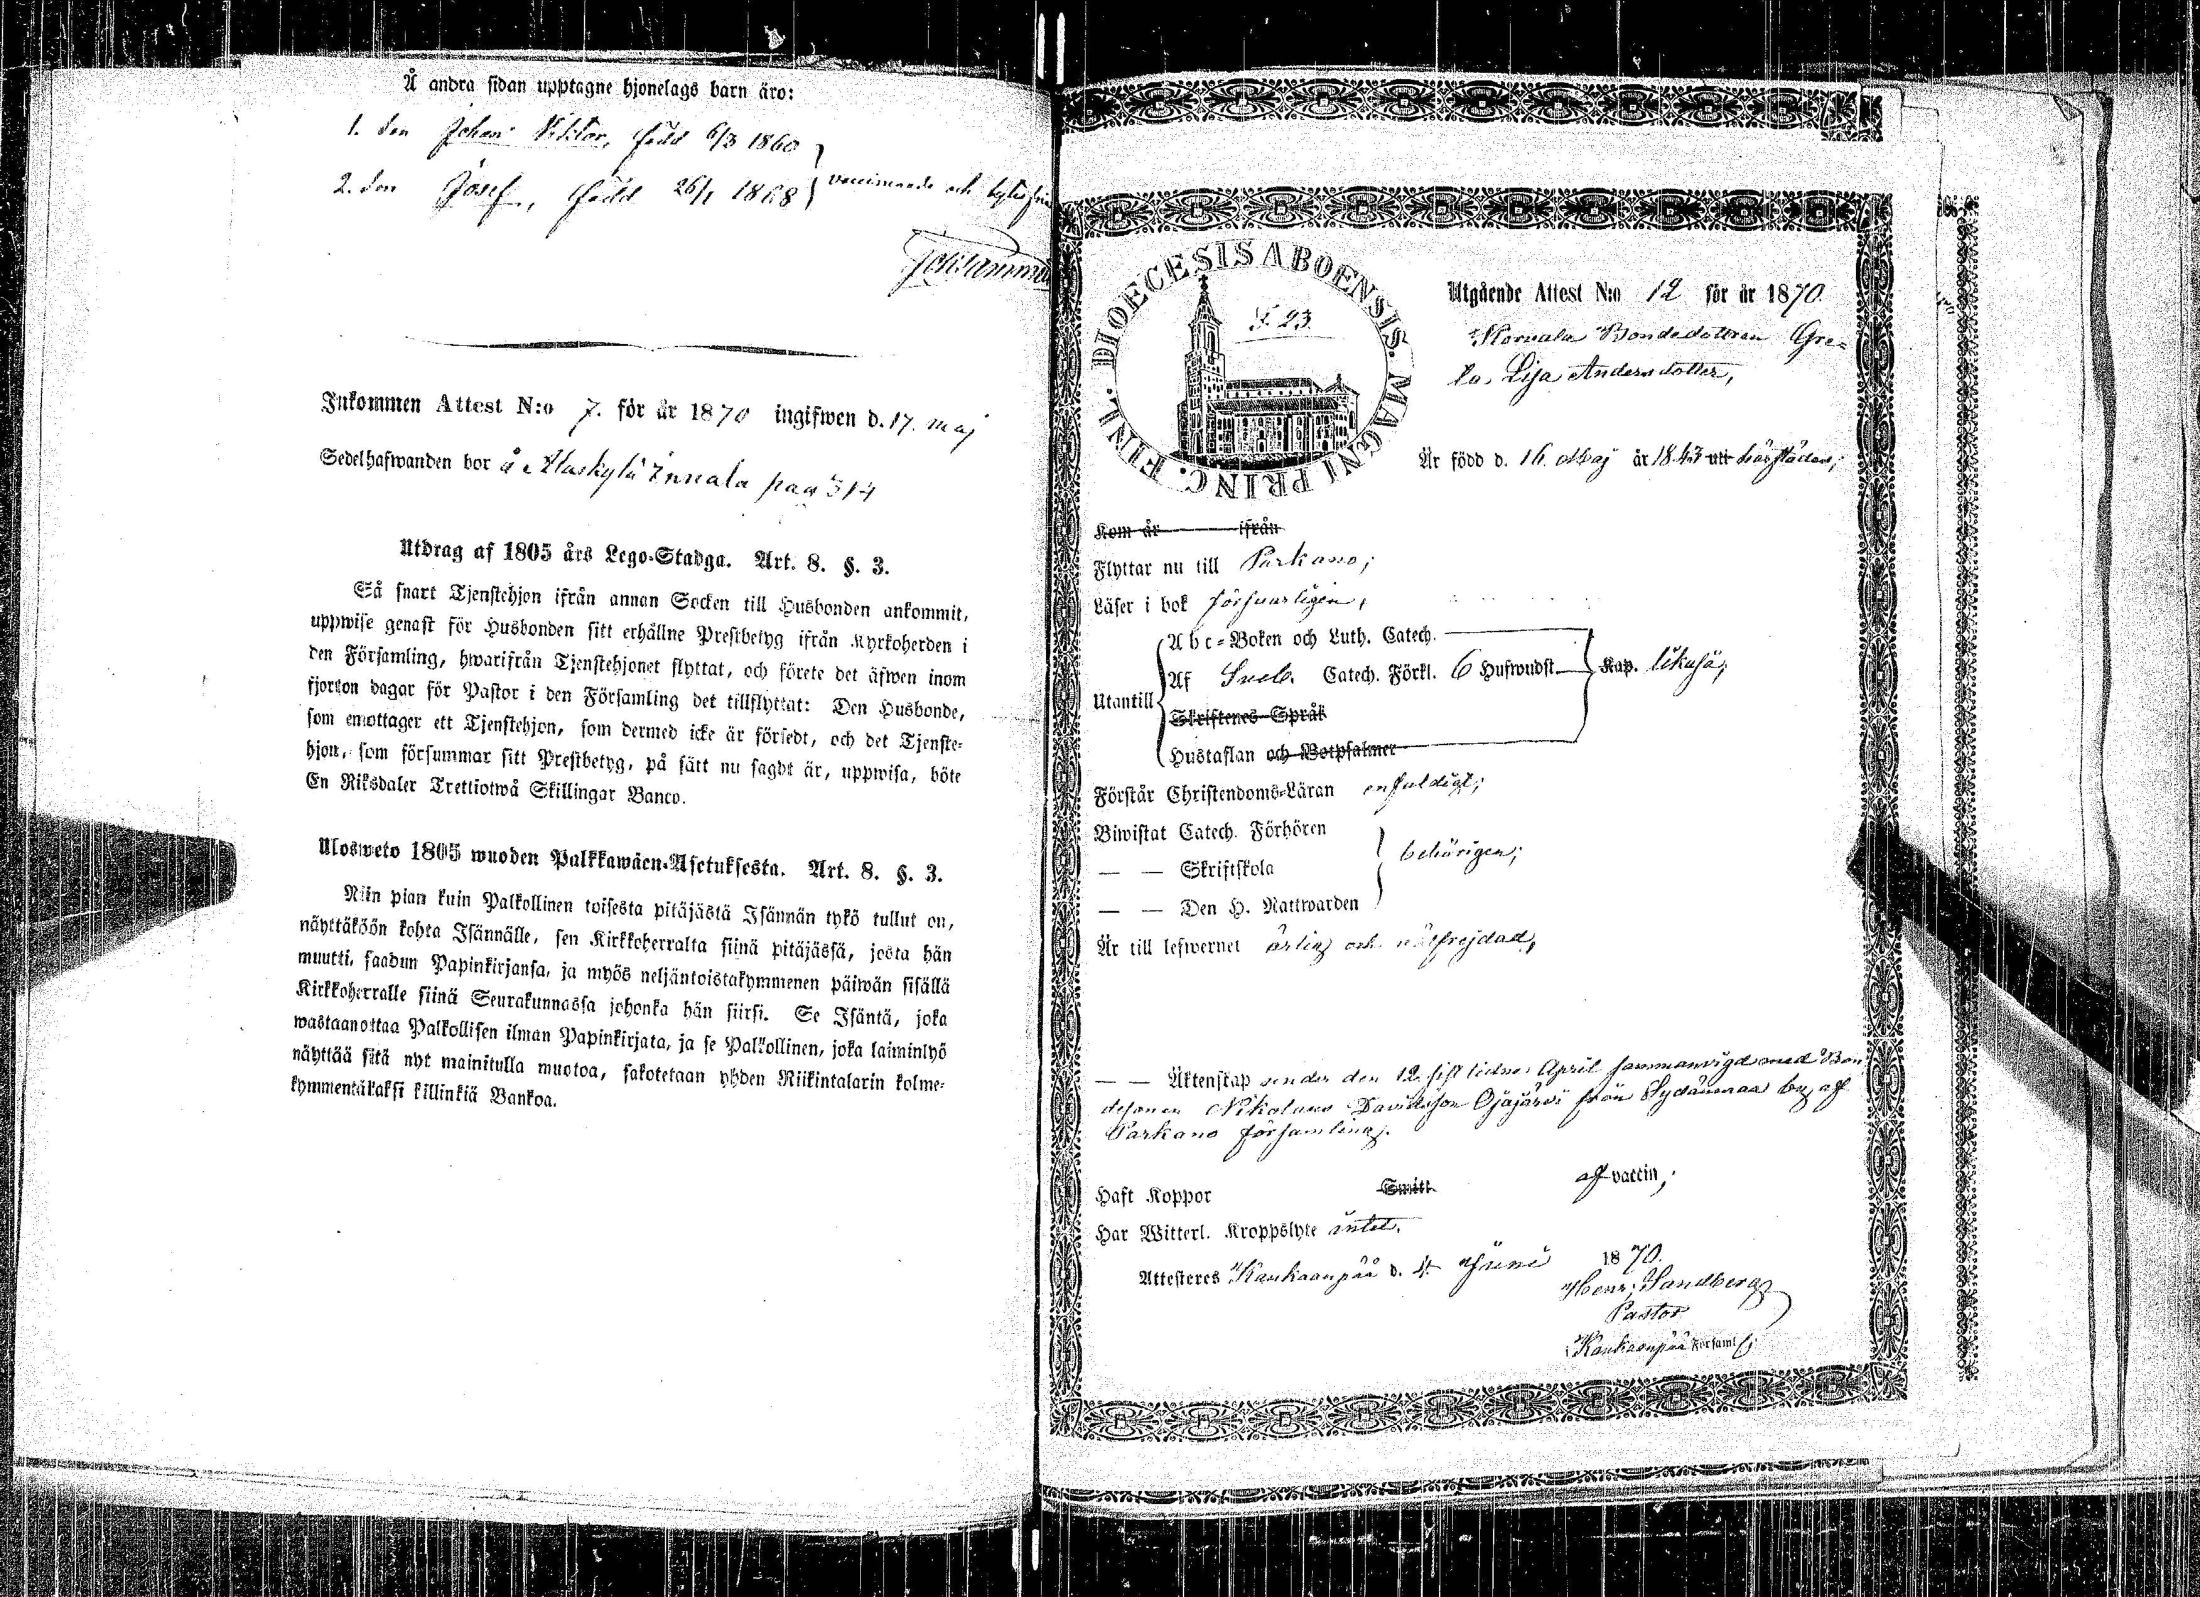 Å andra sidan upptagne hjonelags barn äro:
1. Son Johan Viktor, född 6/3 1860
2. Son Josef, född 26/1 1868 } vaccinerade och lytesfria
Inkommen Attest N:o 7. för år 1870 ingifwen d. 17. maj
Sedelhafwanden bor å Alaskylä pag 314
Utdrag af 1805 års Lego-Stadga. Art. 8. §. 3.
Så snart Tjenstehjon ifrån annan Socken till Husbonden ankommit,
uppwise genast för Husbonden sitt erhållne Prestbetyg ifrån Kyrkoherden i
den Församling, hwarifrån Tjenstehjonet flyttat, och förete det äfwen inom
fjorton dagar för Pastor i den Församling det tillflyttat: Den Husbonde,
som emottager ett Tjenstehjon, som dermed icke är försedt, och det Tjenste-
hjon, som försummar sitt Prestbetyg, på sätt nu sagdt är, uppwisa, böte
En Riksdaler Trettiotwå Skillingar Banco.
Ulosweto 1805 wuoden Palkkawäen-Asetuksesta. Art. 8. §. 3.
Niin pian kuin Palkollinen toisesta pitäjästä Isännän tykö tullut on,
näyttäköön kohta Isännälle, sen Kirkkoherralta siinä pitäjässä, josta hän
muutti, saadun Papinkirjansa, ja myös neljäntoistakymmenen päiwän sisällä
Kirkkoherralle siinä Seurakunnassa johonka hän siirsi. Se Isäntä, joka
wastaanottaa Palkollisen ilman Papinkirjata, ja se Palkollinen, joka laiminlyö
näyttää sitä nyt mainitulla muotoa, sakotetaan yhden Riikintalarin kolme-
kymmentäkaksi killinkiä Bankoa.
DIOECESIS ABOENSIS. MAGNI PRINC. FINL.
F. 23.
Utgående Attest N:o 12 för år 1870
Korvala Bondedottren Gre-
ta Lisa Andersdotter,
Är född d. 16. Maj år 1843 utt härstädes;
Kom år ifrån
Flyttar nu till Parkano;
Läser i bok försvarligen,
Abc-Boken och Luth. Catech.
Utantill Af Sveb. Catech. Förkl. 6 Hufwudst. Kap. likaså;
Skriftenes Språk
Hustaflan och Botpsalmer
Förstår Christendoms-Läran enfaldigt;
Biwistat Catech. Förhören
— — Skriftskola } behörigen;
— — Den H. Nattwarden
Är till lefwernet ärlig och välfrejdad,
— — Äktenskap under den 12 sistlidne April sammanvigd med Bon-
desonen Nikolaus Davidsson Ojajärvi från Sydänmaa by af
Parkano församling.
Haft Koppor Smitt af vaccin;
Har Witterl. Kroppslyte intet.
Attesteres Kankaanpää d. 4 Juni 1870.
Henr. Sandberg
Pastor
Kankaanpää Församl.